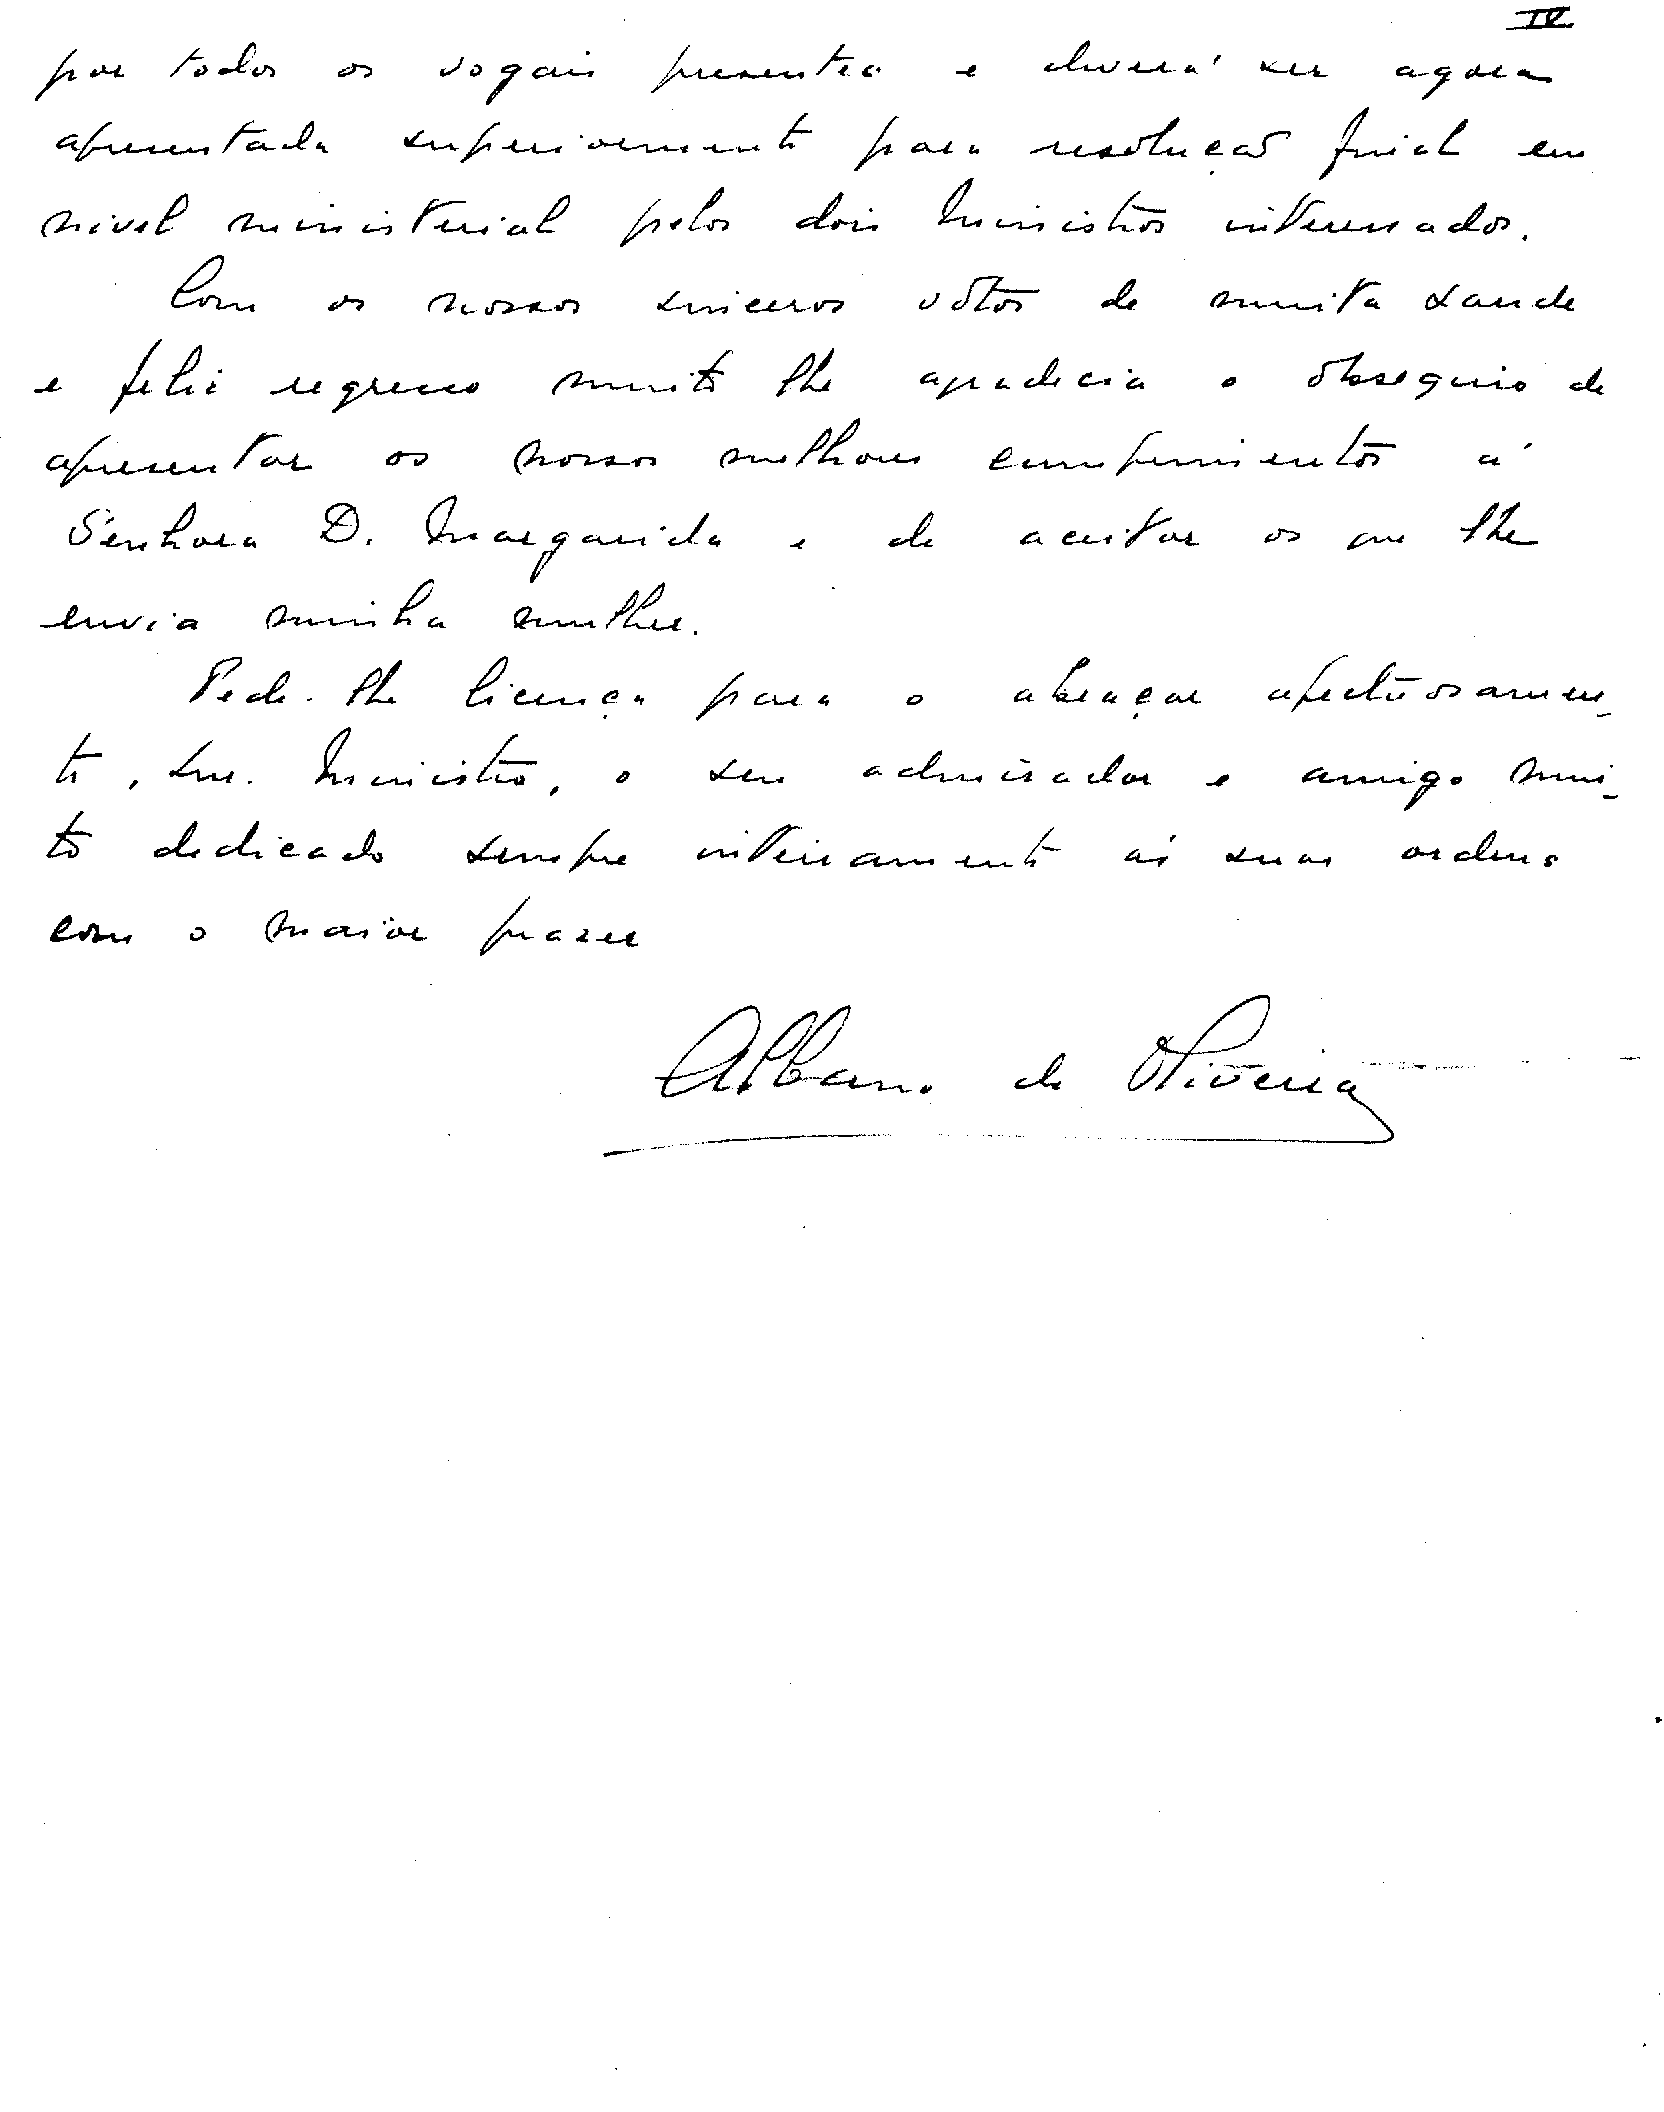 IV
por todos os vogais presentes e deverá ser agora
apresentada superiormente para resolução final em
nivel ministerial pelos dois Ministros interessados.
Com os nossos sinceros votos de muita saude
e feliz regresso muito lhe agradecia o obsequio de
apresentar os nossos melhores cumprimentos á
Senhora D. Margarida e de aceitar os que lhe
envia minha mulher.
Pede-lhe licença para o abraçar afectuosamen-
te, Snr. Ministro, o seu admirador e amigo mui-
to dedicado sempre inteiramente ás suas ordens
com o maior prazer
Albano de Oliveira